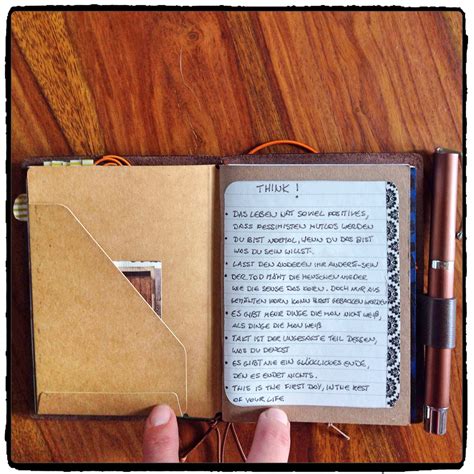 THINK!
• DAS LEBEN HAT SOVIEL POSITIVES,
DASS PESSIMISTEN MUTLOS WERDEN
• DU BIST NORMAL, WENN DU DAS BIST
WAS DU SEIN WILLST.
• LASST DEN ANDEREN IHR ANDERS-SEIN
• DER TOD MÄHT DIE MENSCHEN NIEDER
WIE DIE SENSE DAS KORN. DOCH NUR AUS
GEMÄHTEN KORN KANN BROT GEBACKEN WERDEN
• ES GIBT MEHR DINGE DIE MAN NICHT WEIß,
ALS DINGE DIE MAN WEIß
• TAKT IST DER UNGESAGTE TEIL DESSEN,
WAS DU DENKST
• ES GIBT NIE EIN GLÜCKLICHES ENDE,
DEN ES ENDET NICHTS.
• THIS IS THE FIRST DAY, IN THE REST
OF YOUR LIFE